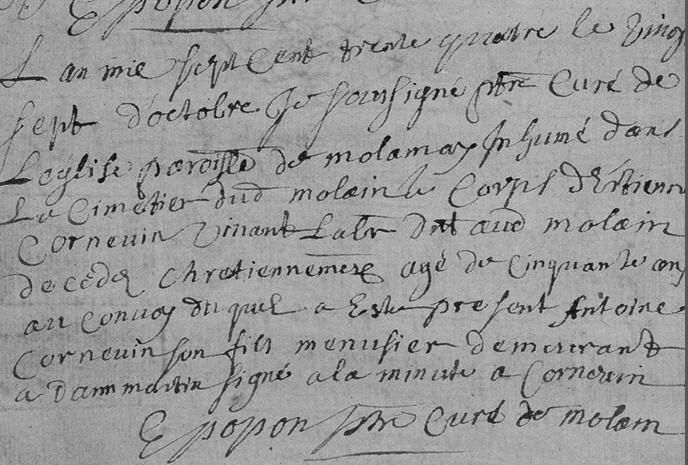 E popon
L an mie sept Cent trente quatre le vingt
sept d'octobre Je soussigné ptre Curé de
L'eglise paroisse de molam ay Inhumé dans
Le Cimetier dud molain le Corps d'Etienne
Cornevin vivant Labr dnt aud molain
decedez chretiennement agé de cinquante ans
au convoy du quel a Este present Antoine
Cornevin son fils menusier demeurant
a dammartin signé a la minute a Cornevin
E popon ptre Curé de molain